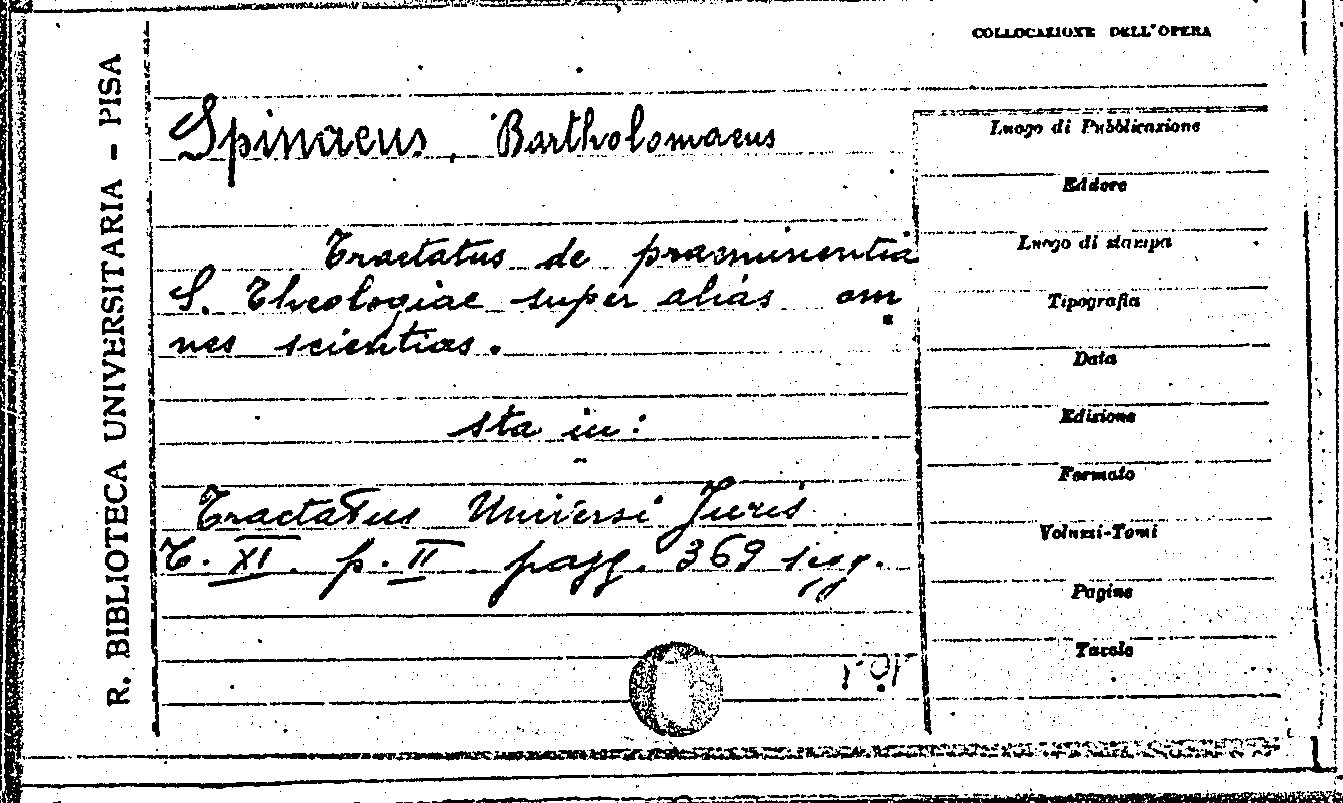 R. BIBLIOTECA UNIVERSITARIA - PISA
COLLOCAZIONE DELL'OPERA
Spinaeus, Bartholomaeus
Tractatus de praeminentia
S. Theologiae super alias om
nes scientias.
sta in:
Tractatus Universi Juris
T. XI. p. II. pagg. 369 segg.
Luogo di Pubblicazione
Editore
Luogo di stampa
Tipografia
Data
Edizione
Formato
Volumi-Tomi
Pagine
Tavole